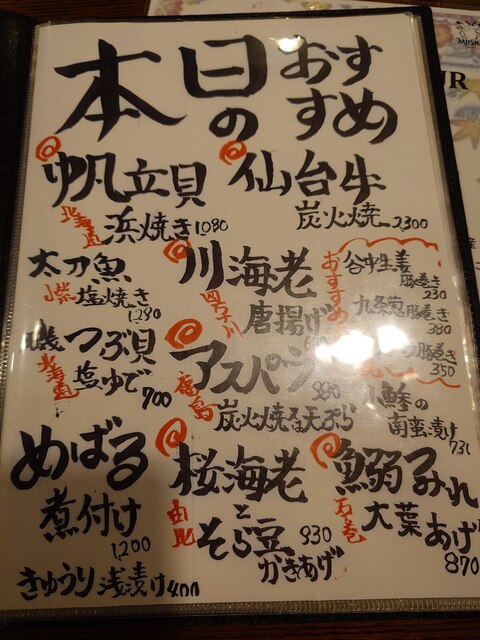 本日のおすすめ
仙台牛
炭火焼 2300
帆立貝
北海道 浜焼き 1080
川海老
四万十川 唐揚げ
太刀魚
塩焼き 1280
おすすめ
谷中生姜
豚巻き
230
九条葱 豚巻き
380
豚巻き
350
磯つぶ貝
北海道 塩ゆで 700
アスパラ
880
炭火焼 又は 天ぷら
小鯵の
南蛮漬け
731
めばる
煮付け
1200
桜海老
と
由比 そら豆 930
かきあげ
鰯つみれ
石巻 大葉
あげ
870
きゅうり浅漬け 400